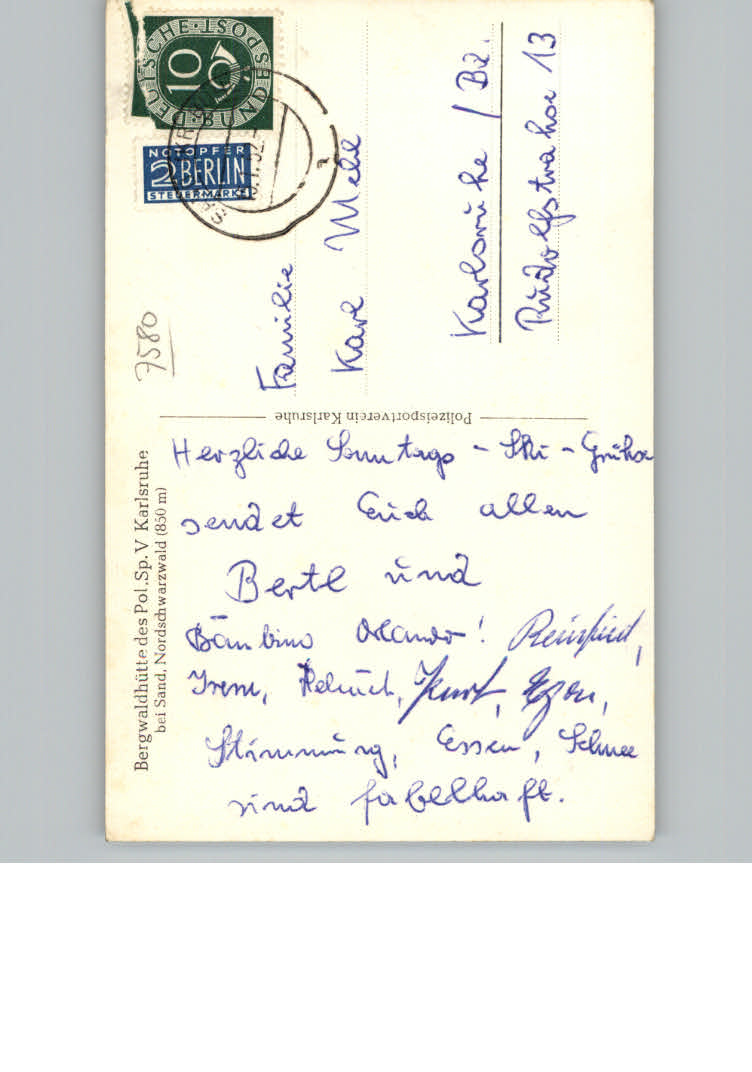 Bergwaldhütte des Pol. Sp. V Karlsruhe
bei Sand, Nordschwarzwald (850 m)
Herzliche Sonntags - Ski - Grüße
sendet Euch allen
Bertl und
Bambino Orlando! Reinfried,
Irene, Helmut, Kurt, Egon,
Stimmung, Essen, Schnee
sind fabelhaft.
Polizeisportverein Karlsruhe
7580
DEUTSCHE POST BUNDES
10
NOTOPFER
2 BERLIN
STEUERMARKE
Familie
Karl
Karlsruhe / Bd.
Rudolfstraße 13